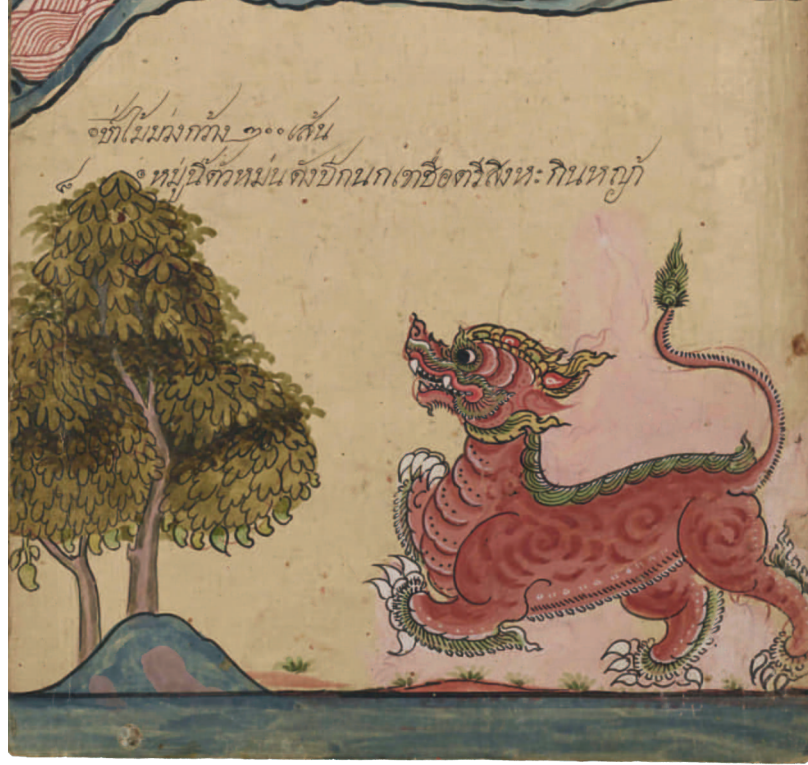 ๏ ป่าไม้ม่วงกว้าง ๓๐๐ เส้น
๏ หมู่นี้ตัวหม่นดังปีกนกเขาชื่อตรีสิงหะกินหญ้า